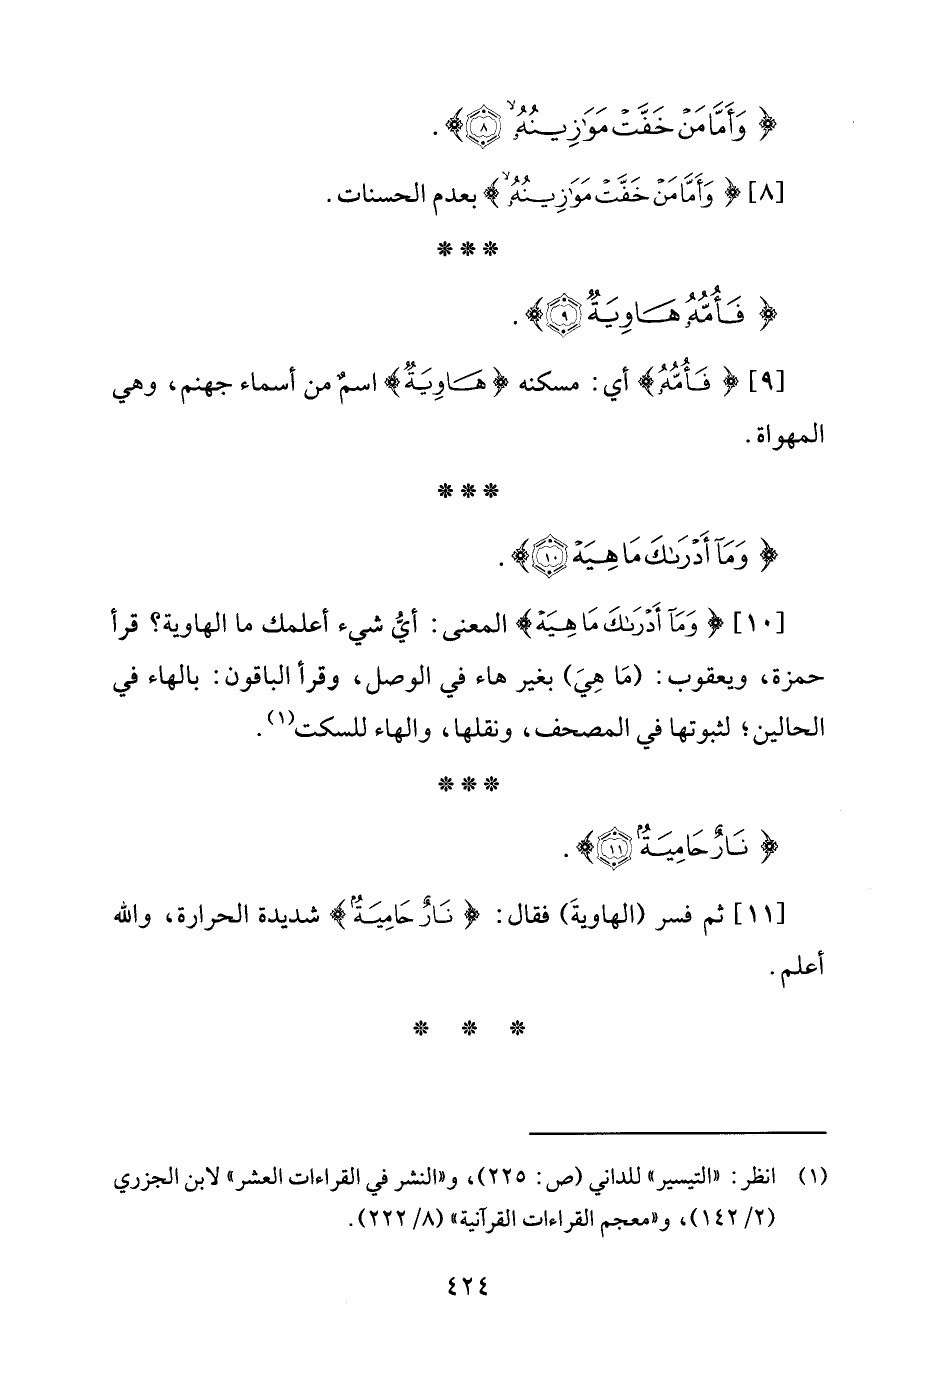 ﴿ وَأَمَّا مَنْ خَفَّتْ مَوَٰزِينُهُۥ ۝٨ ﴾ .
[٨] ﴿ وَأَمَّا مَنْ خَفَّتْ مَوَٰزِينُهُۥ ﴾ بعدم الحسنات .
* * *
﴿ فَأُمُّهُۥ هَاوِيَةٌ ۝٩ ﴾ .
[٩] ﴿ فَأُمُّهُۥ ﴾ أي : مسكنه ﴿ هَاوِيَةٌ ﴾ اسمٌ من أسماء جهنم، وهي
المهواة .
* * *
﴿ وَمَآ أَدْرَىٰكَ مَا هِيَهْ ۝١٠ ﴾ .
[١٠] ﴿ وَمَآ أَدْرَىٰكَ مَا هِيَهْ ﴾ المعنى : أيُّ شيء أعلمك ما الهاوية؟ قرأ
حمزة، ويعقوب : (مَا هِيَ) بغير هاء في الوصل، وقرأ الباقون : بالهاء في
الحالين؛ لثبوتها في المصحف، ونقلها، والهاء للسكت(١).
* * *
﴿ نَارٌ حَامِيَةٌۢ ۝١١ ﴾ .
[١١] ثم فسر (الهاويةَ) فقال : ﴿ نَارٌ حَامِيَةٌۢ ﴾ شديدة الحرارة، والله
أعلم .
* * *
(١) انظر : «التيسير» للداني (ص: ٢٢٥)، و«النشر في القراءات العشر» لابن الجزري
(٢/ ١٤٢)، و«معجم القراءات القرآنية» (٨/ ٢٢٢).
٤٢٤